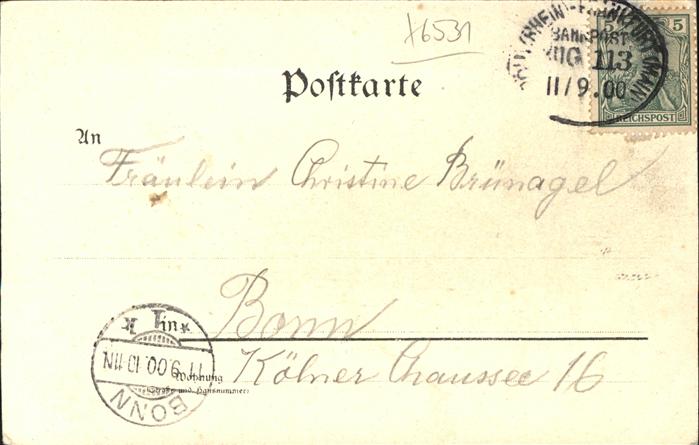 X6531
KÖLN (RHEIN)-FRANKFURT (MAIN)
BAHNPOST
ZUG 113
11/9.00
5 5
REICHSPOST
Postkarte
An
Fräulein Christine Brünagel
in
Bonn
Wohnung
(Straße und Hausnummer)
Kölner Chaussee 16
BONN
11.9.00.10-11N
* 1 *